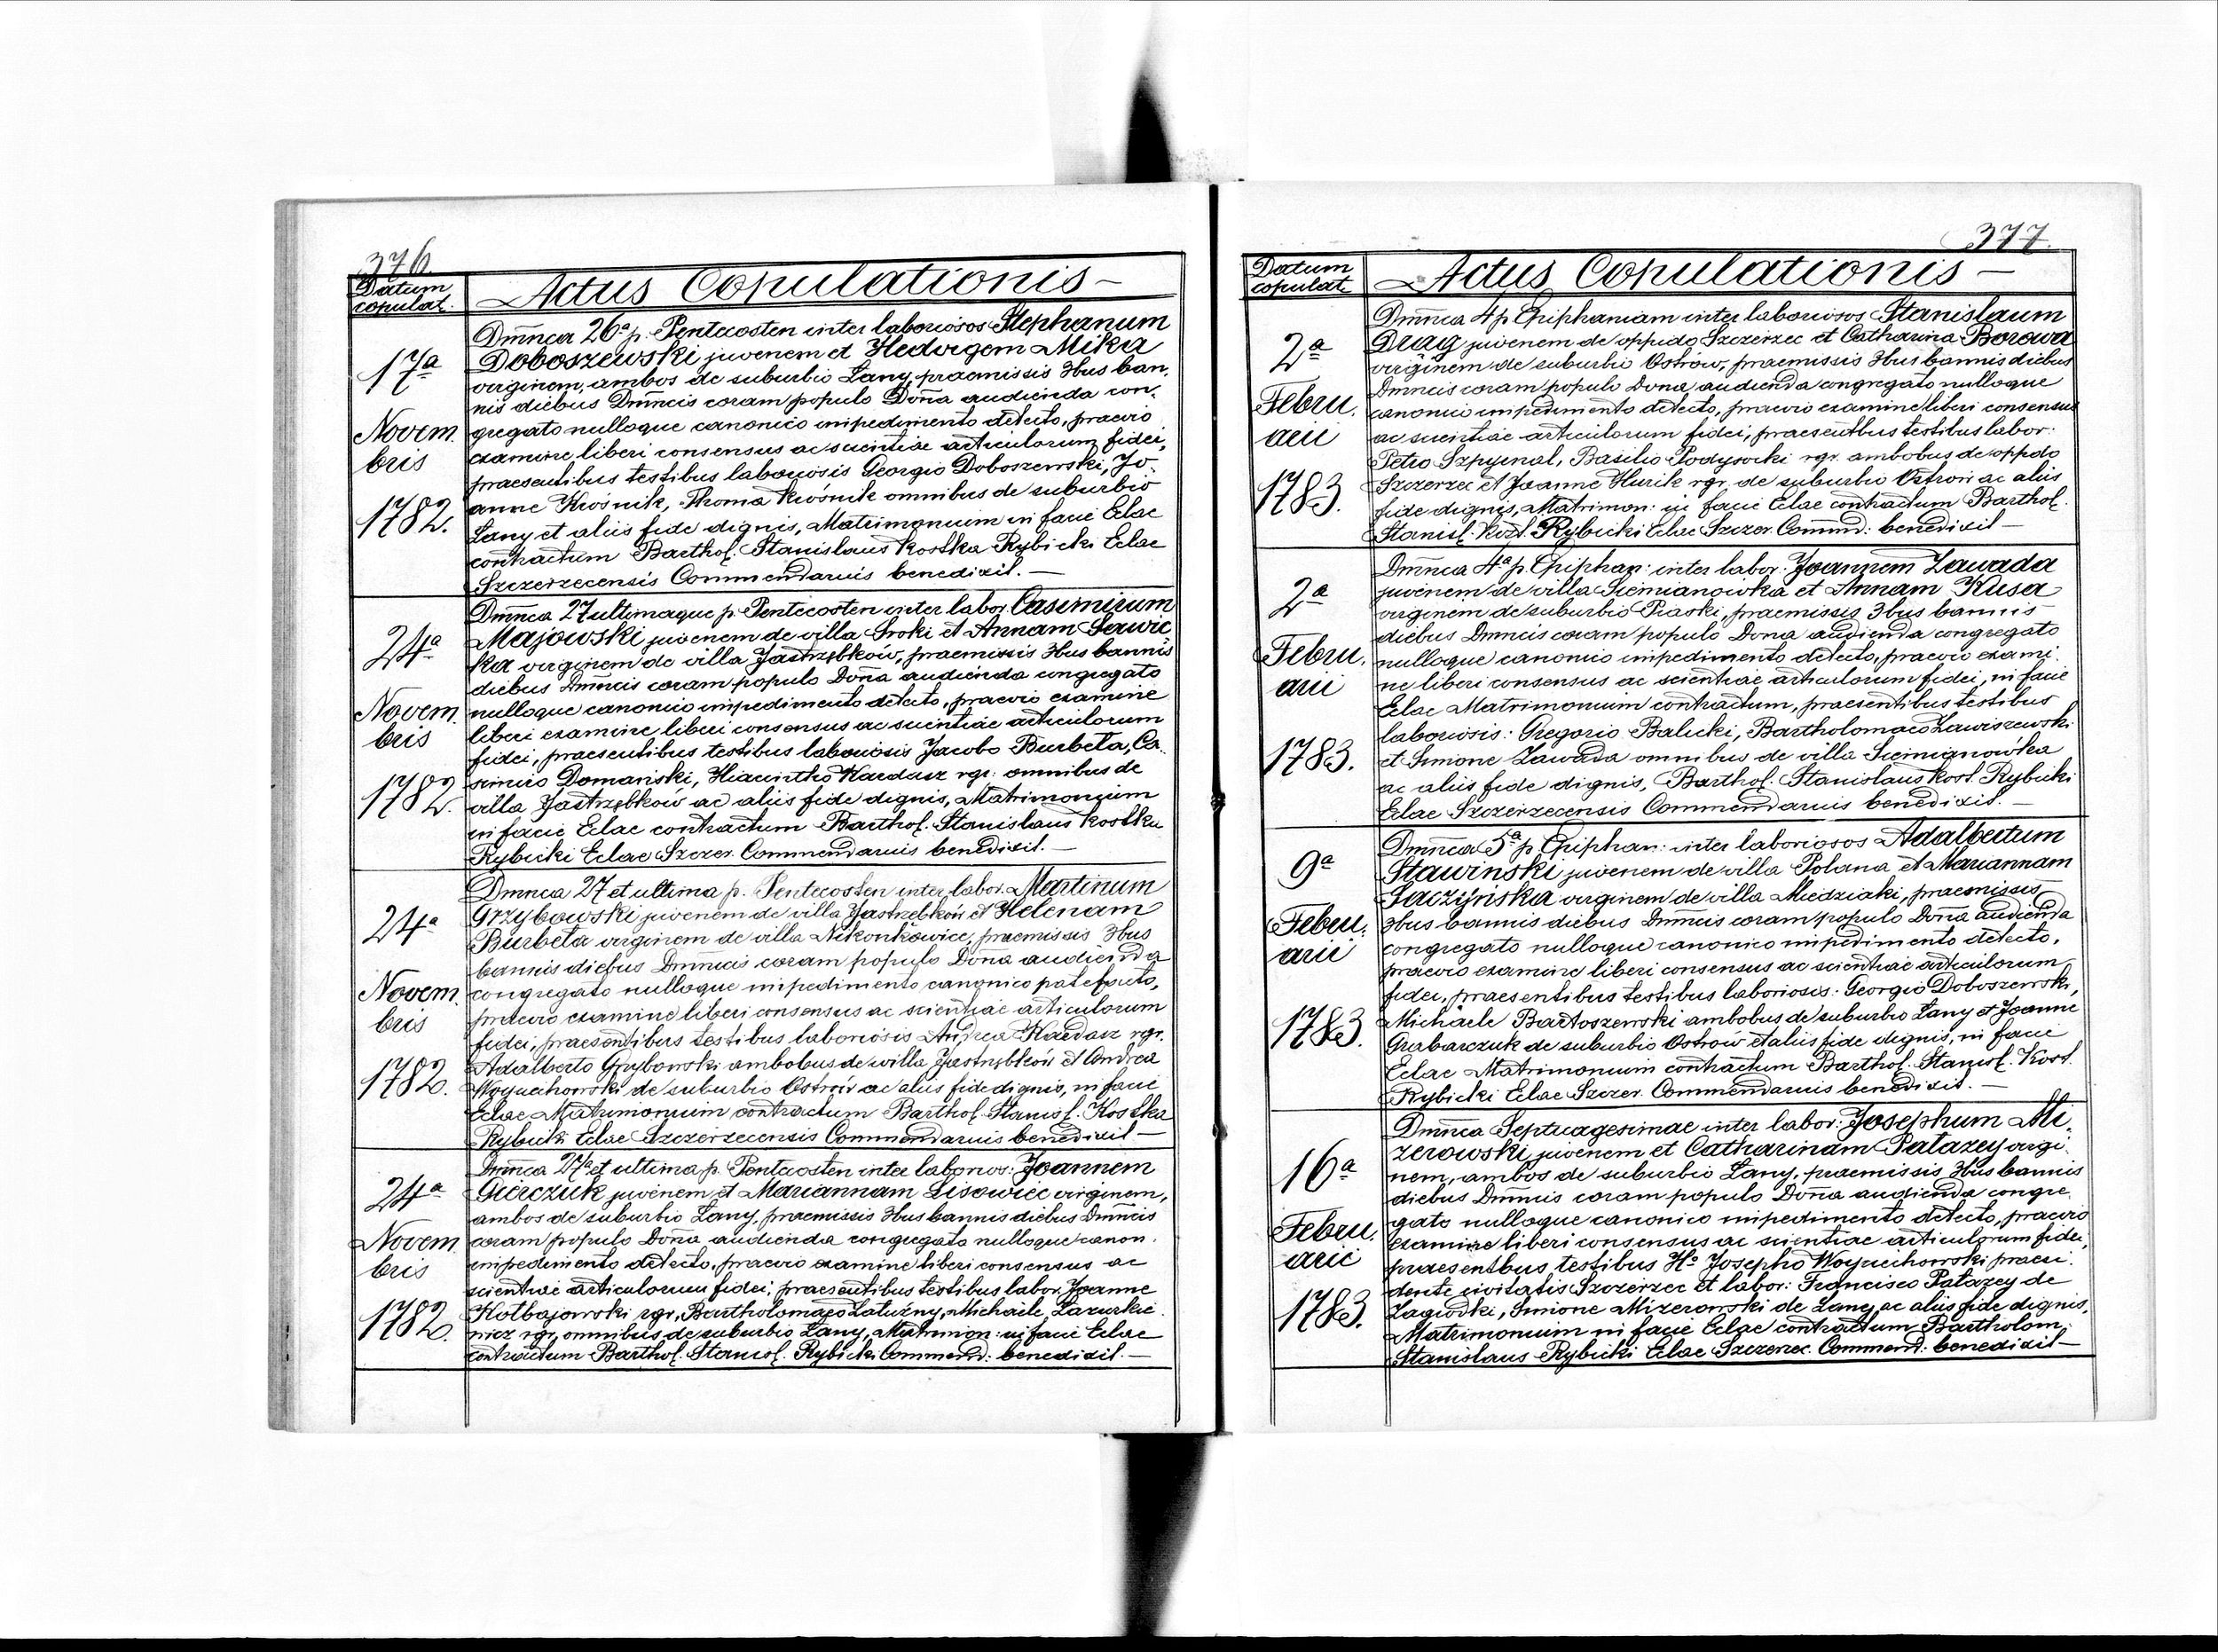 376.
Datum
copulat.
Actus Copulationis –
17ª
Novem.
bris
1782.
Dm̄nca 26ª p. Pentecosten inter laboriosos Stephanum
Doboszewski juvenem et Hedvigem Mika
virginem, ambos de suburbio Łany, praemissis 3bus ban-
nis diebus Dm̄ncis coram populo Don̄a audienda con-
gregato nulloque canonico impedimento detecto, praevio
examine liberi consensus ac scientiae articulorum fidei,
praesentibus testibus laboriosis Georgio Doboszewski, Jo-
anne Krośnik, Thoma Krośnik omnibus de suburbio
Łany et aliis fide dignis, Matrimonium in facie Eclae
contractum Barthol. Stanislaus Kostka Rybicki Eclae
Szczerzecensis Commendarius benedixit. —
24ª
Novem.
bris
1782.
Dm̄nca 27 ultimaque p. Pentecosten inter labor. Casimirum
Majowski juvenem de villa Sroki et Annam Sawic
ka virginem de villa Jastrzębków, praemissis 3bus bannis
diebus Dm̄ncis coram populo Don̄a audienda congregato
nulloque canonico impedimento detecto, praevio examine
liberi examine liberi consensus ac scientiae articulorum
fidei, praesentibus testibus laboriosis Jacobo Burbeła, Ca-
simiro Domański, Hiacintho Kardasz rgr. omnibus de
villa Jastrzębków ac aliis fide dignis, Matrimonium
in facie Eclae contractum Barthol. Stanislaus Kostka
Rybicki Eclae Szczer. Commendarius benedixit. —
24ª
Novem.
bris
1782.
Dmnca 27 et ultima p. Pentecosten inter labor. Martinum
Grzybowski juvenem de villa Jastrzebków et Helenam
Burbeła virginem de villa Nikonkowice, praemissis 3bus
bannis diebus Dmncis coram populo Don̄a audienda
congregato nulloque impedimento canonico patefacto,
praevio examine liberi consensus ac scientiae articulorum
fidei, praesentibus testibus laboriosis Andrea Kardasz rgr.
Adalberto Grzybowski ambobus de villa Jastrzębków et Andrea
Woyciechowski de suburbio Ostrów ac aliis fide dignis, in facie
Eclae Matrimonium contractum Barthol. Stanisl. Kostka
Rybicki Eclae Szczerzecensis Commendarius benedixit —
24ª
Novem.
bris
1782.
Dm̄nca 27ª et ultima p. Pentecosten inter laborios: Joannem
Gierczuk juvenem et Mariannam Lisowiec virginem,
ambos de suburbio Łany, praemissis 3bus bannis diebus Dm̄ncis
coram populo Don̄a audienda congregato nulloque canon.
impedimento detecto, praevio examine liberi consensus ac
scientiae articulorum fidei; praesentibus testibus labor. Joanne
Kołbajowski rgr., Bartholomaeo Zatuzny, Michaele Lazurkie
wicz rgr, omnibus de suburbio Łany, Matrimon: in facie Eclae
contractum Barthol. Stanisl. Rybicki Commend: benedixit. —
377.
Datum
copulat.
Actus Copulationis —
2ª
Febru.
arii
1783.
Dm̄nca 4 p Epiphaniam inter laboriosos Stanislaum
Drąg juvenem de oppido Szczerzec et Catharina Borowa
virginem de suburbio Ostrów, praemissis 3bus bannis diebus
Dmncis coram populo Dona audienda congregato nulloque
canonico impedimento detecto, praevio examine liberi consensus
ac scientiae articulorum fidei, praesentbus testibus labor:
Petro Szpyrnal, Basilio Podysocki rgr. ambobus de oppdo
Szczerzec et Joanne Hurik rgr. de suburbio Ostrów ac aliis
fide dignis, Matrimon: in facie Eclae contractum Barthol.
Stanisl. Kost. Rybicki Eclae Szczer. Commd: benedixit —
2ª
Febru.
arii
1783.
Dm̄nca 4ª p. Epiphan: inter labor: Joannem Zawada
juvenem de villa Siemianówka et Annam Kusa
virginem de suburbio Piaski, praemissis 3bus bannis
diebus Dmncis coram populo Dona audienda congregato
nulloque canonico impedimento detecto, praevio exami-
ne liberi consensus ac scientiae articulorum fidei, in facie
Eclae Matrimonium contractum, praesentibus testibus
laboriosis: Gregorio Balicki, Bartholomaeo Zawiszewski
et Simone Zawada omnibus de villa Siemianówka
ac aliis fide dignis, Barthol. Stanislaus Kost. Rybicki
Eclae Szczerzecensis Commendarius benedixit. —
9ª
Febru.
arii
1783.
Dm̄nca 5ª p. Epiphan: inter laboriosos Adalbertum
Stawinski juvenem de villa Polana et Mariannam
Saczyńska virginem de villa Miedziaki, praemissis
3bus bannis diebus Dm̄ncis coram populo Don̄a audienda
congregato nulloque canonico impedimento detecto,
praevio examine liberi consensus ac scientiae articulorum
fidei, praesentibus testibus laboriosis: Georgio Doboszewski,
Michaele Bartoszewski ambobus de suburbio Łany et Joanne
Grabarczuk de suburbio Ostrów et aliis fide dignis, in facie
Eclae Matrimonium contractum Barthol. Stanisl. Kost.
Rybicki Eclae Szczer. Commendarius benedixit. —
16ª
Febru.
arii
1783.
Dm̄nca Septuagesimae inter labor: Josephum Mi-
zerowski juvenem et Catharinam Patazey virgi-
nem, ambos de suburbio Łany, praemissis 3bus bannis
diebus Dmncis coram populo Dona audienda congre-
gato nulloque canonico impedimento detecto, praevio
examine liberi consensus ac scientiae articulorum fidei,
praesentbus testibus Ho Josepho Woyciechowski praesi-
dente civitatis Szczerzec et labor: Francisco Patazey de
Zagródki, Simone Mizerowski de Łany ac aliis fide dignis,
Matrimonium in facie Eclae contractum Bartholom.
Stanislaus Rybicki Eclae Szczerzec. Commend: benedixit —